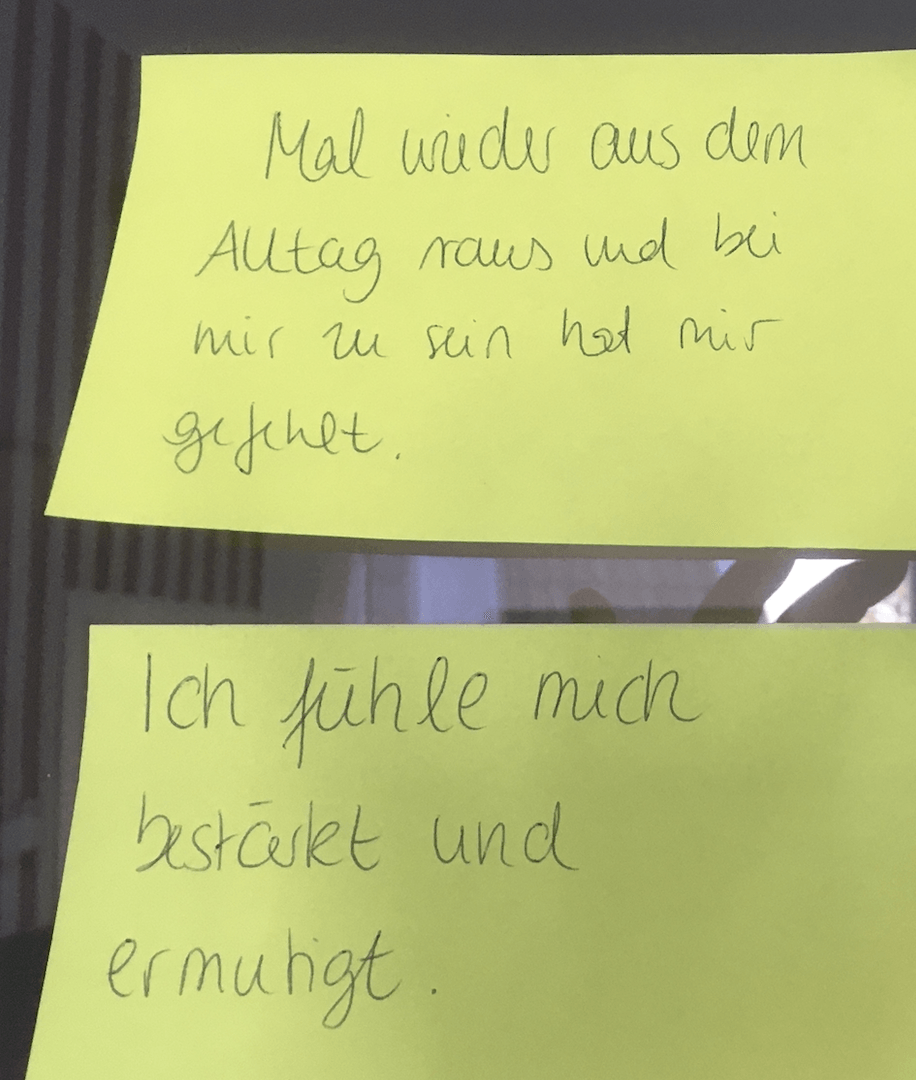 Mal wieder aus dem
Alltag raus und bei
mir zu sein hat mir
gefehlt.
Ich fühle mich
bestärkt und
ermutigt.